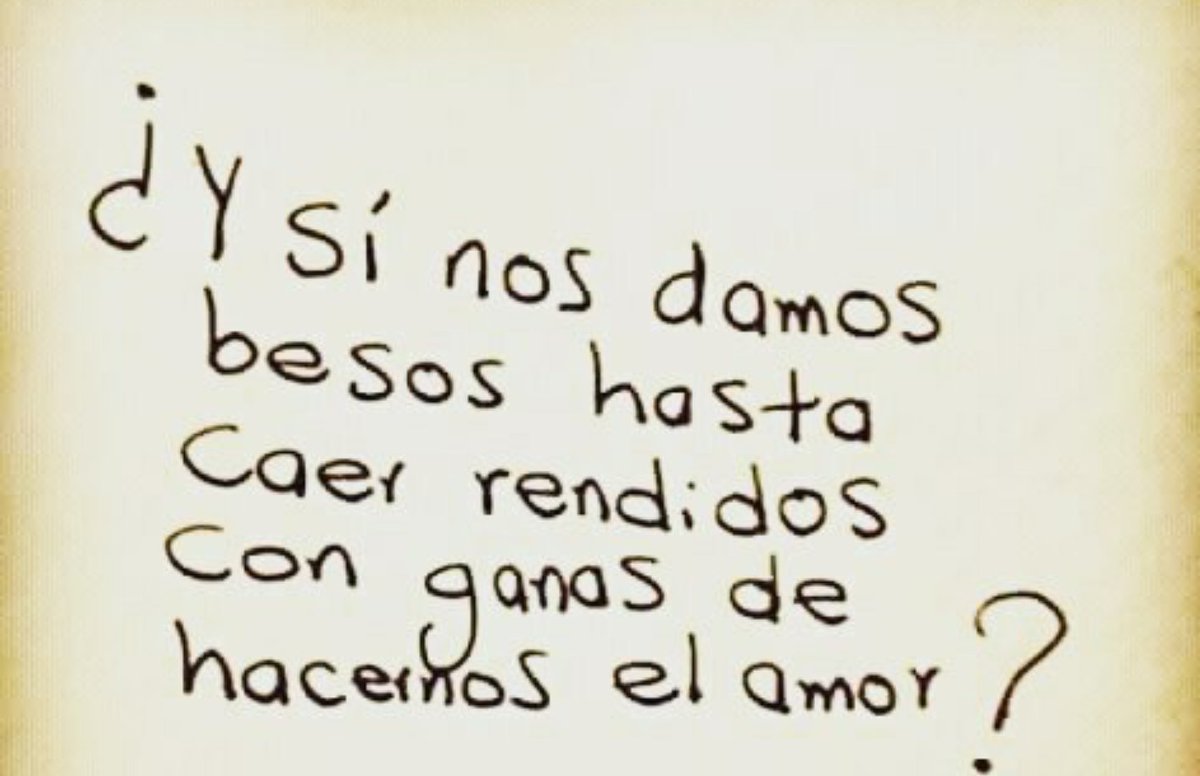 ¿Y Sí nos damos
besos hasta
Caer rendidos
Con ganas de
hacernos el amor?